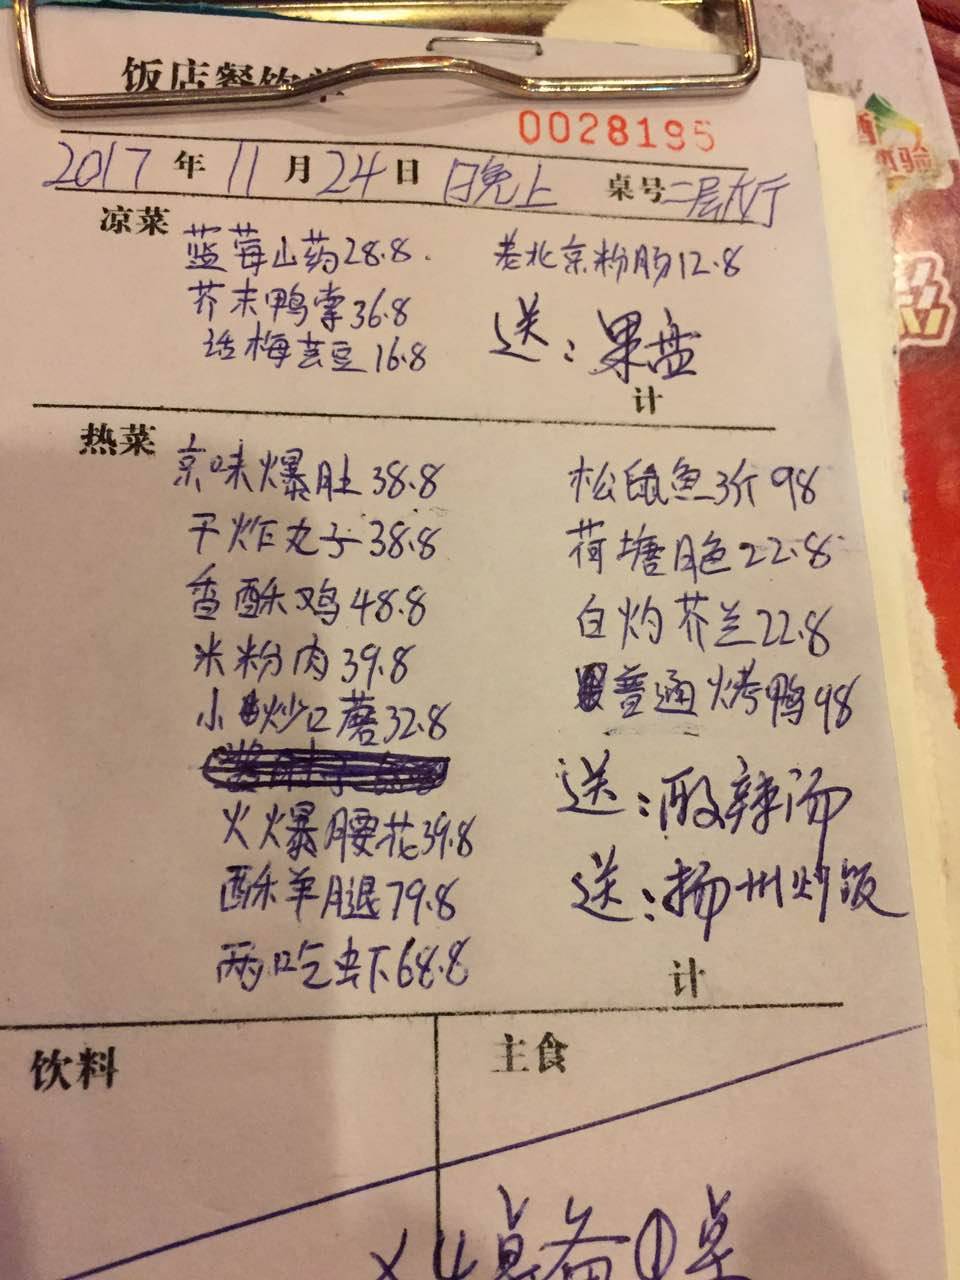 饭店餐饮
0028195
2017年11月24日 晚上 桌号 二层大厅
凉菜
蓝莓山药28.8. 老北京粉肠12.8
芥末鸭掌36.8 送：果盘
话梅芸豆16.8
计
热菜
京味爆肚38.8 松鼠鱼3斤98
干炸丸子38.8 荷塘月色22.8
香酥鸡48.8 白灼芥兰22.8
米粉肉39.8 普通烤鸭98
小炒口蘑32.8
送：酸辣汤
火爆腰花39.8
酥羊腿79.8 送：扬州炒饭
两吃虾68.8
计
饮料 主食
×4桌备①桌